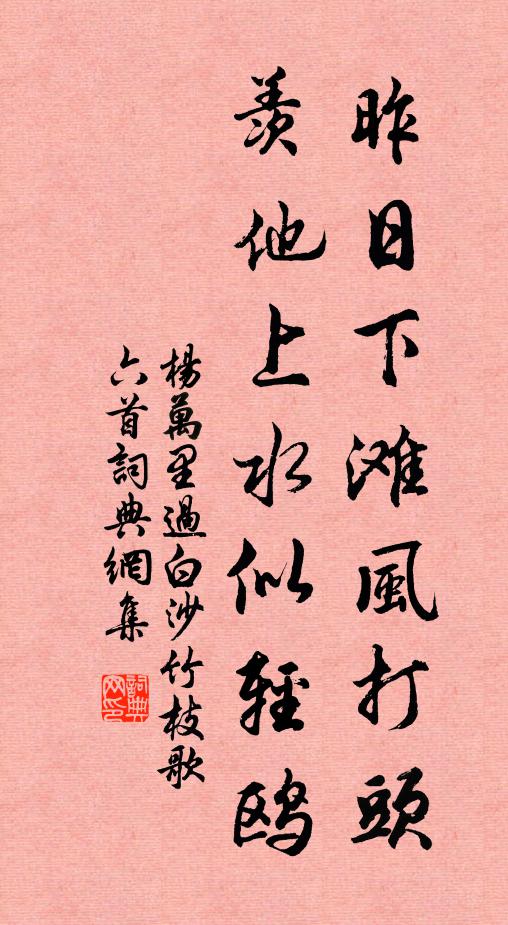 昨日下滩風打頭
羨他上水似輕鸥
楊萬里過白沙竹枝歌
六首詞典網集
詞典網印